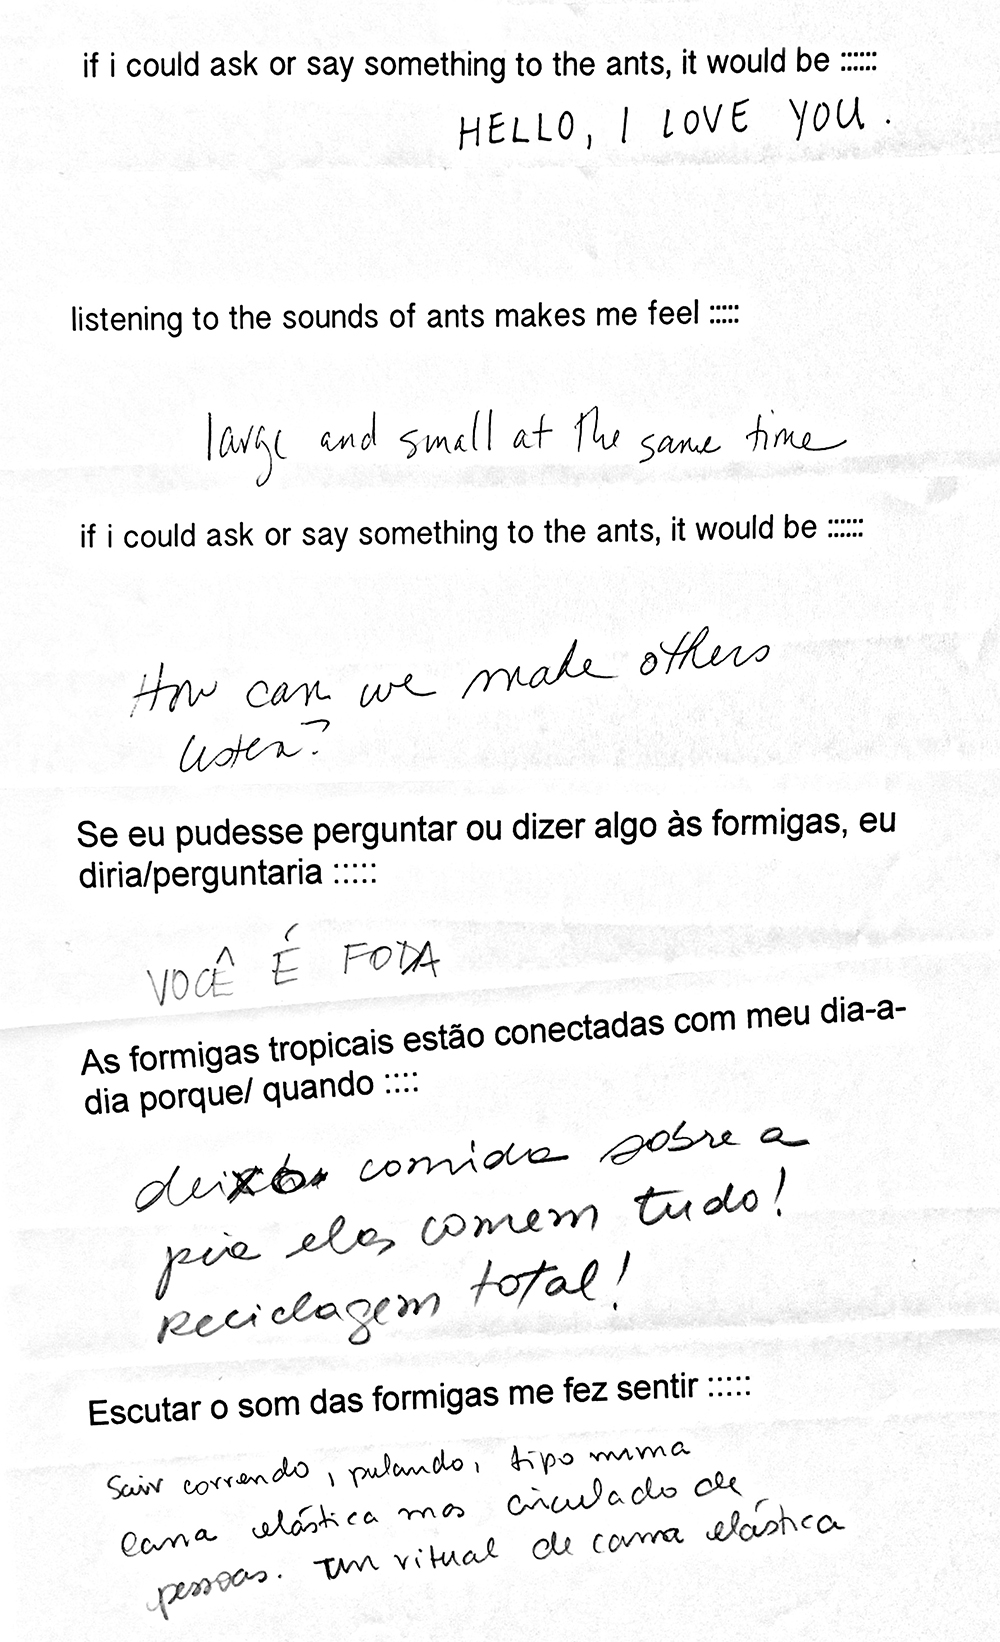 if i could ask or say something to the ants, it would be ::::::
HELLO, I LOVE YOU.
listening to the sounds of ants makes me feel :::::
large and small at the same time
if i could ask or say something to the ants, it would be ::::::
How can we make others
listen?
Se eu pudesse perguntar ou dizer algo às formigas, eu
diria/perguntaria :::::
VOCÊ É FODA
As formigas tropicais estão conectadas com meu dia-a-
dia porque/ quando ::::
deixo comida sobre a
pia elas comem tudo!
Reciclagem total!
Escutar o som das formigas me fez sentir :::::
Sair correndo, pulando, tipo numa
cama elástica mas circulado de
pessoas. Um ritual de cama elástica